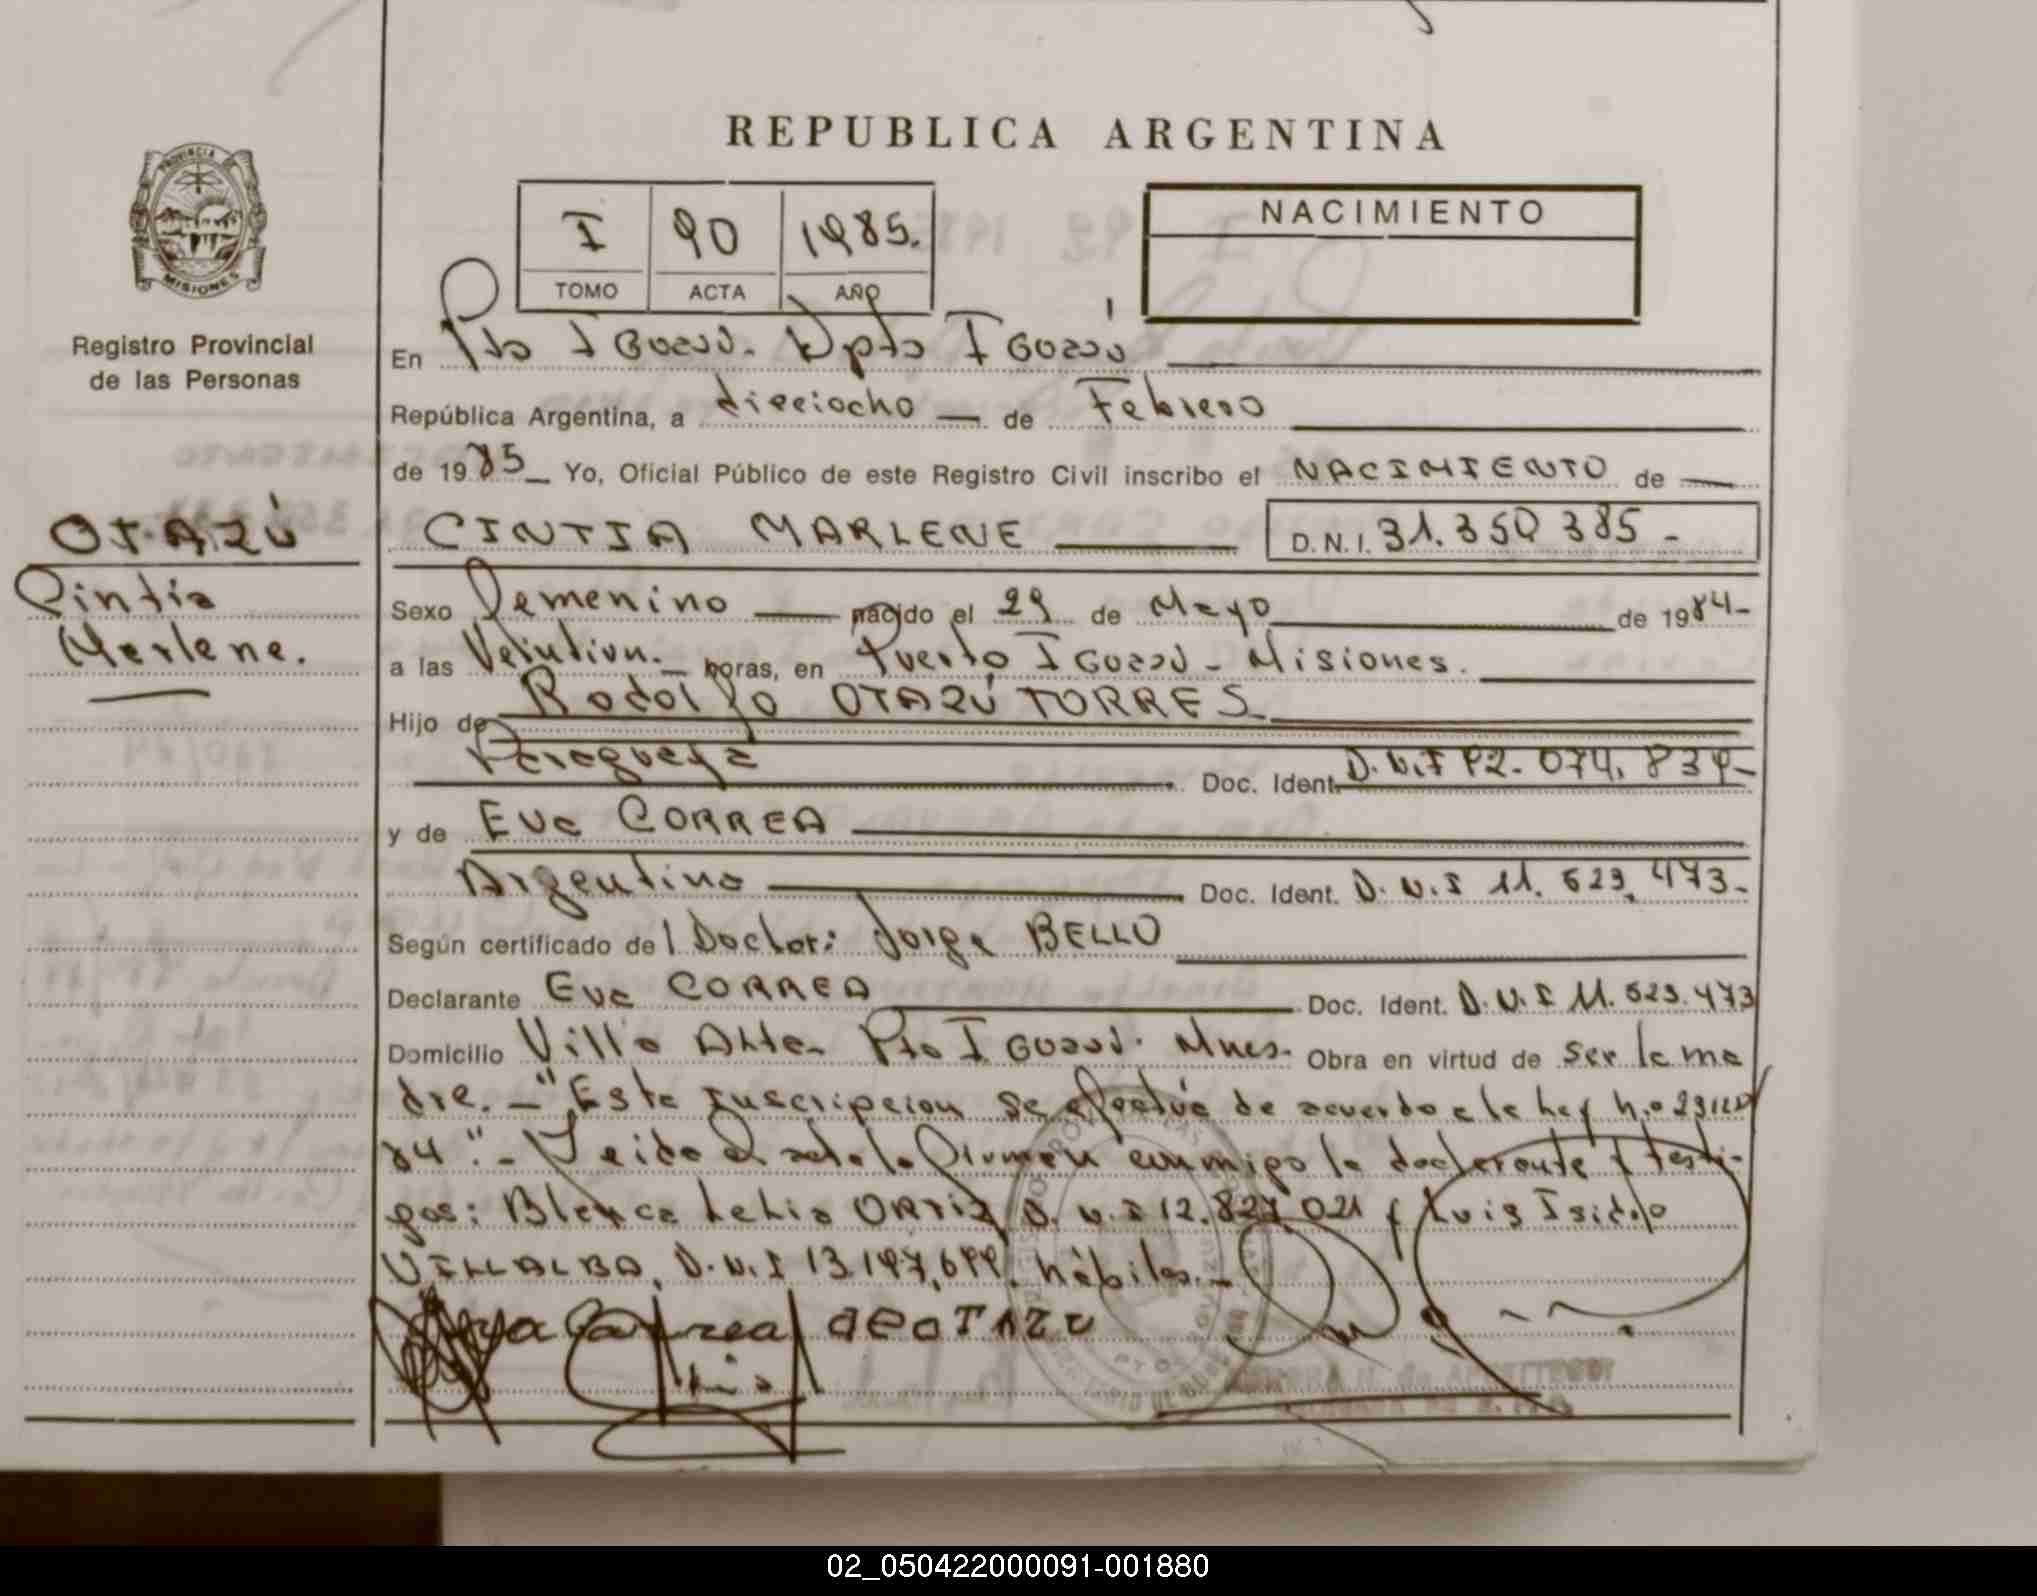 REPUBLICA ARGENTINA
PROVINCIA
MISIONES
Registro Provincial
de las Personas
I 90 1985.
TOMO ACTA AÑO
NACIMIENTO
En Pto Iguazú. Dpto Iguazú
República Argentina, a dieciocho — de Febrero
de 1985 — Yo, Oficial Público de este Registro Civil inscribo el NACIMIENTO de —
OTAZÚ
Cintia
Marlene.
CINTIA MARLENE — D.N.I. 31.350 385 -
Sexo Femenino — nacido el 29 de Mayo de 1984-
a las Veintiun. — horas, en Puerto Iguazú - Misiones.
Hijo de Rodolfo OTAZÚ TORRES
Paraguaya Doc. Ident. D.N.I 92. 074. 839-
y de Eva CORREA
Argentina Doc. Ident. D.N.I 11. 623. 473-
Según certificado de l Doctor: Jorge BELLO
Declarante Eva CORREA Doc. Ident. D.N.I 11. 623. 473
Domicilio Villa Alta- Pto Iguazú. Mnes- Obra en virtud de ser la ma
dre. - "Esta Inscripcion se efectúa de acuerdo a la Ley N.o
84". - Leida el acta la Firman conmigo la declarante y testi-
gos: Blanca Lelia ORTIZ D.N.I 12.827 021 y Luis Isidro
VILLALBA, D.N.I 13.197.699. hábiles. -
Correa de OTAZU
02_050422000091-001880